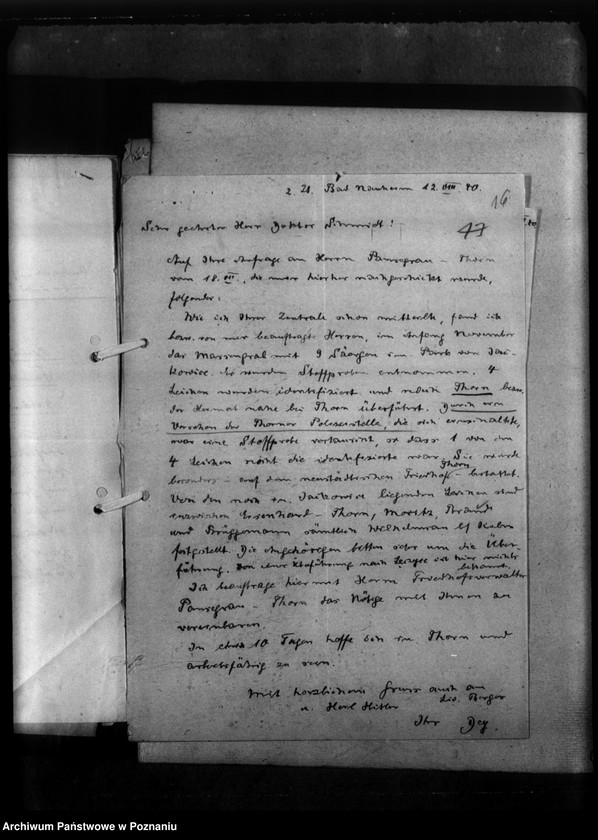 z. Zt. Bad Nauheim 12. VIII. 40.
16
47
Sehr geehrter Herr Doktor Simmidt!
Auf Ihre Anfrage an Herrn Pansegrau – Thorn
vom 18. VII, die mir hierher nachgeschickt wurde,
folgendes:
Wie ich Ihrer Zentrale schon mitteilte, fand ich
bezw. von mir beauftragte Herren, im Anfang November
das Massengrab mit 9 Särgen im Park von
Es wurden Stoffproben entnommen. 4
Leichen wurden identifiziert und nach Thorn bezw.
der Heimat nahe bei Thorn überführt. Durch ein
Versehen der Thorner Polizeistelle, die sich einschaltete,
war eine Stoffprobe vertauscht, so dass 1 von den
4 Leichen nicht die identifizierte war. Sie wurde
besonders – auf dem neustädtischen Friedhof Thorn – bestattet.
Von den noch in liegenden Leichen sind
inzwischen – Thorn, Moritz, Brandt
und Brüggemann sämtlich
festgestellt. Die Angehörigen bitten sehr um die Über-
führung. Von einer Abführung nach ist hier nichts
bekannt.
Ich beauftrage hiermit Herrn Friedhofsverwalter
Pansegrau – Thorn das Nötige mit Ihnen zu
vereinbaren.
In etwa 10 Tagen hoffe ich in Thorn und
arbeitsfähig zu sein.
Mit herzlichem Gruss auch an
Berger
u. Heil Hitler
Ihr Dey.
Archiwum Państwowe w Poznaniu